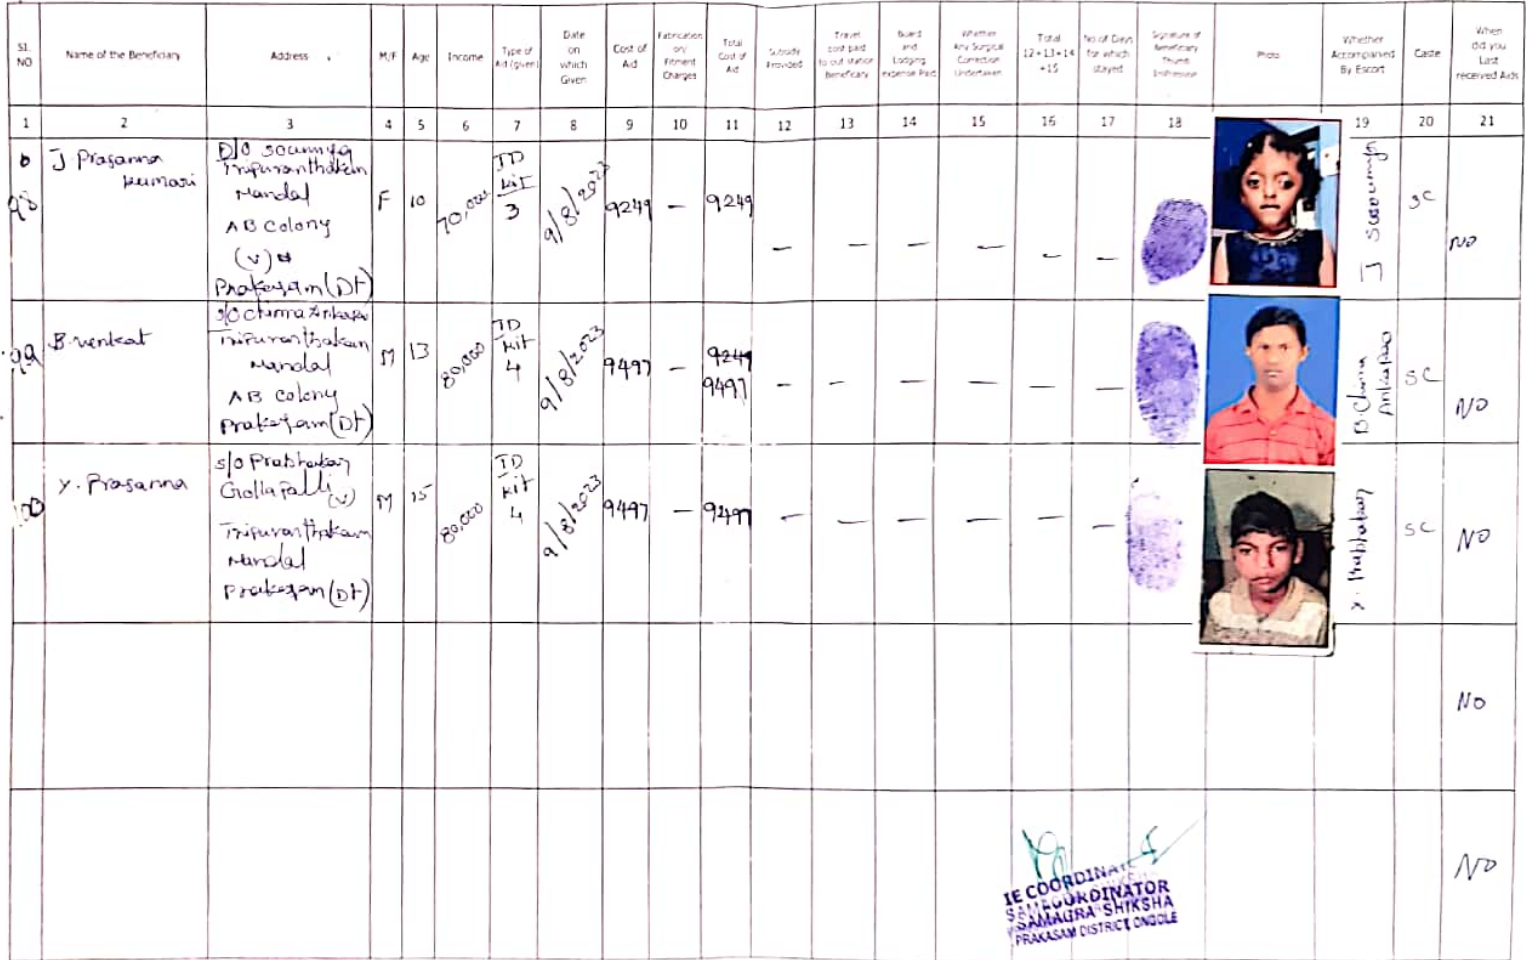 Sl. NO
Name of the Beneficiary
Address
M/F
Age
Income
Type of Aid (given)
Date on which Given
Cost of Aid
Fabrication on/ Fitment Charges
Total Cost of Aid
Subsidy Provided
Travel cost paid to out station Beneficiary
Board and Lodging expense Paid
Whether Any Surgical Correction Undertaken
Total 12+13+14 +15
No of Days for which stayed
Signature of Beneficiary Thumb Impression
Photo
Whether Accompanied By Escort
Caste
When did you Last received Aids
1 2 3 4 5 6 7 8 9 10 11 12 13 14 15 16 17 18 19 20 21
98
J Prasanna
kumari
D/o Soumya
Tripuranthakam
Mandal
AB Colony
(v)
Prakasam (Dt)
F
10
70,000
TD
kit
3
9/8/2023
9249
–
9249
– – – – – –
J Soumya
SC
NO
99
B. venkat
s/o chinna Ankarao
Tripuranthakam
Mandal
AB Colony
Prakasam (Dt)
M
13
80,000
TD
kit
4
9/8/2023
9497
–
9249
9497
– – – – – –
B. Chinna
Ankarao
SC
NO
100
Y. Prasanna
s/o Prabhakar
Gollapalli (v)
Tripuranthakam
Mandal
Prakasam (Dt)
M
15
80,000
TD
kit
4
9/8/2023
9497
–
9497
– – – – – –
Y. Prabhakar
SC
NO
NO
NO
IE COORDINATOR
SAMAGRA SHIKSHA
PRAKASAM DISTRICT, ONGOLE